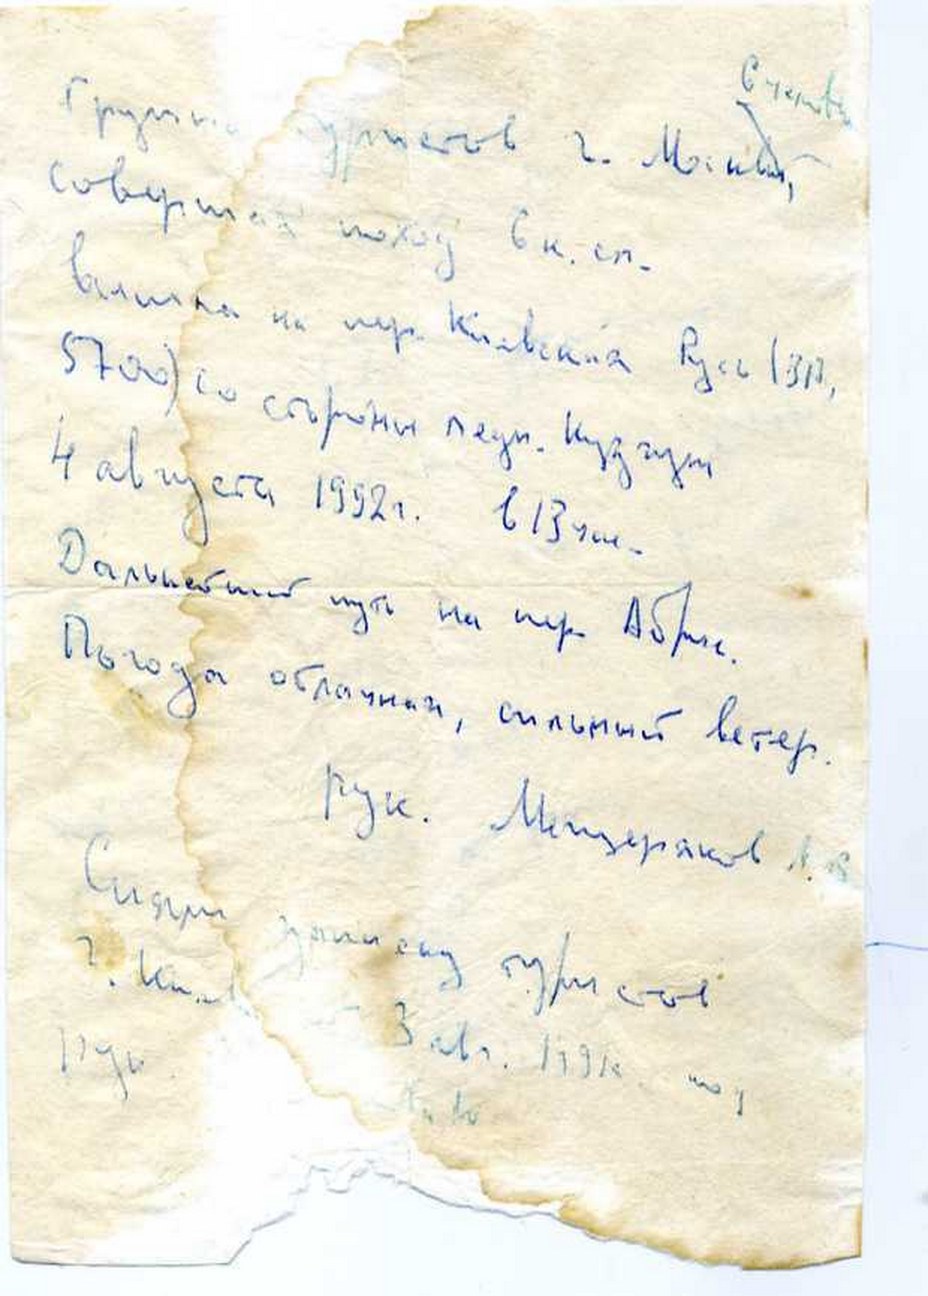 6 человек
Группа туристов г. Москвы,
совершая поход 6 к. сл.
вышла на пер. Киевская Русь (3Б,
5700) со стороны ледн. Кудгун
4 августа 1992г. в 13 час.
Дальнейший путь на пер. Абрис.
Погода облачная, сильный ветер.
рук. Мещеряков А. В
Сняли записку туристов
г. Киев от 3 авг. 1991г. под
рук.